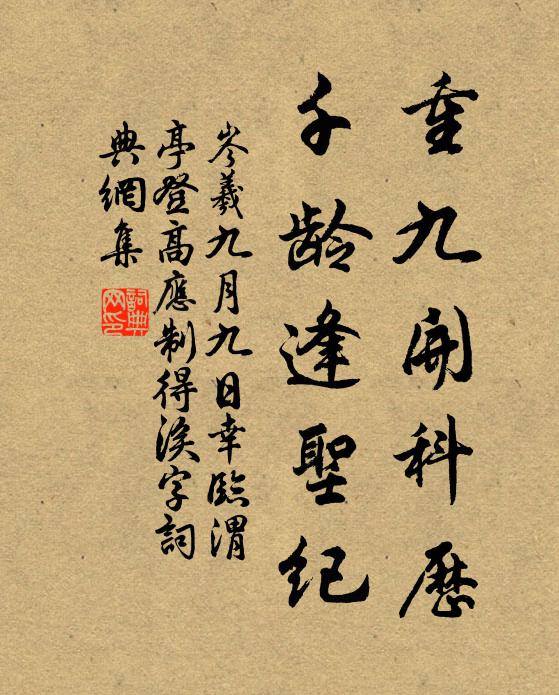 重九開科歷
千齡逢聖紀
岑羲九月九日幸臨渭
亭登高應制得涘字詞
典網集
詞典
网印